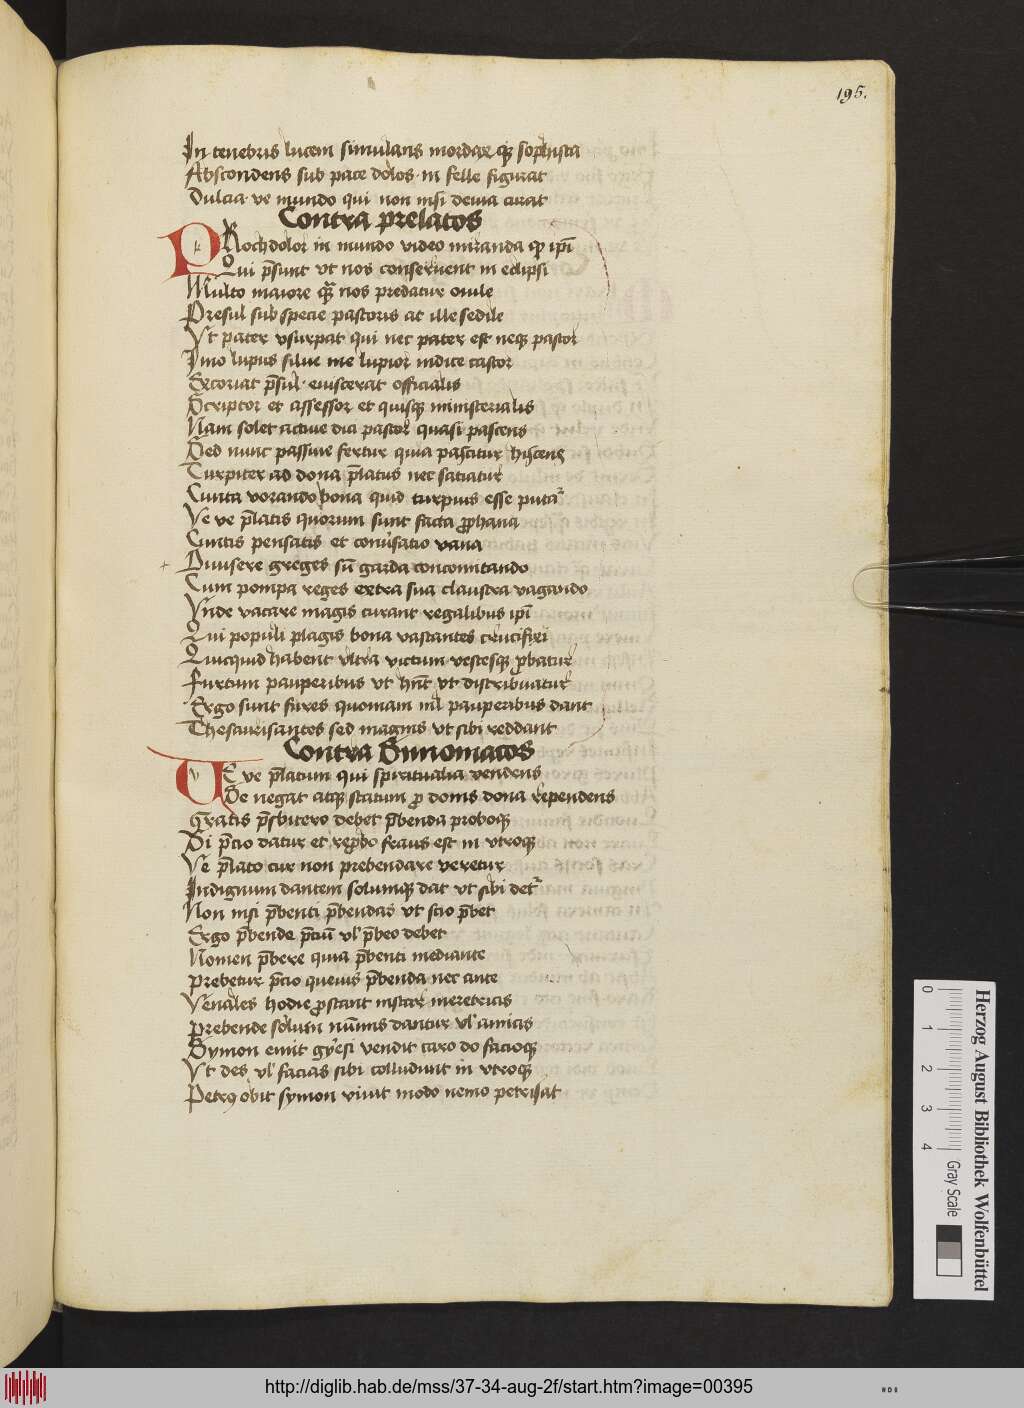 195.
In tenebris lucem simulans mordax qȝ sophista
Abscondens sub pace dolos in felle figurat
Dulcia ve mundo qui non nisi devia curat
Contra prelatos
PRoch dolor in mundo video miranda qp ipi̅
Qui p̅sunt vt nos conseruent in eclipsi
Multo maiore qua̅ nos predatur ouile
Presul sub specie pastoris at ille sedile
Vt pater vsurpat qui nec pater est neqȝ pastor
Imo lupus silue me lupior indice castor
Excoriat p̅sul euiscerat officialis
Scriptor et assessor et quisqȝ ministerialis
Nam solet actiue dici pastor quasi pascens
Sed nunc passiue fertur quia pascitur hiscens
Turpiter ad dona p̅latus nec saciatur
Cuncta vorando bona quid turpius esse putat᷑
Ve ve p̅latis quorum sunt facta ꝓphana
Cunctis pensatis et conu̕satio vana
Diuisere greges su̅ garda concomitando
Cum pompa reges extra sua claustra vagando
Vnde vacare magis curant regalibus ipi̅
Qui populi plagis bona vastantes crucifixi
Quicquid habent vltra victum vestesqȝ ꝓbatur
Furtum pauperibus vt hn̅t vt distribuatur
Ergo sunt fures quoniam nil pauperibus dant
Thesaurisantes sed magnis vt sibi reddant
Contra Simoniacos
VE ve p̅latum qui spiritualia vendens
Se negat atqȝ statum ꝓ donis dona rependens
Gratis p̅sbitero debet p̅benda proboqȝ
Si p̅cio datur et rep̅bo fraus est in vtroqȝ
Ve p̅lato cur non prebendare veretur
Indignum dantem solumqȝ dat vt sibi det᷑
Non nisi p̅benti p̅bendas vt scio p̅bet
Ergo p̅bende p̅ciu̅ vl̕ p̅beo debet
Nomen p̅bere quia p̅benti mediante
Prebetur p̅cio queuis p̅benda nec ante
Venales hodie ꝓstant instar meretricis
Prebende solum nu̅mis dantur vl̕ amicis
Symon emit gyesi vendit caro do facioqȝ
Vt des vl̕ facias sibi colludunt in vtroqȝ
Petrꝯ obit symon viuit modo nemo petrisat
Herzog August Bibliothek Wolfenbüttel
0 1 2 3 4
Gray Scale
http://diglib.hab.de/mss/37-34-aug-2f/start.htm?image=00395